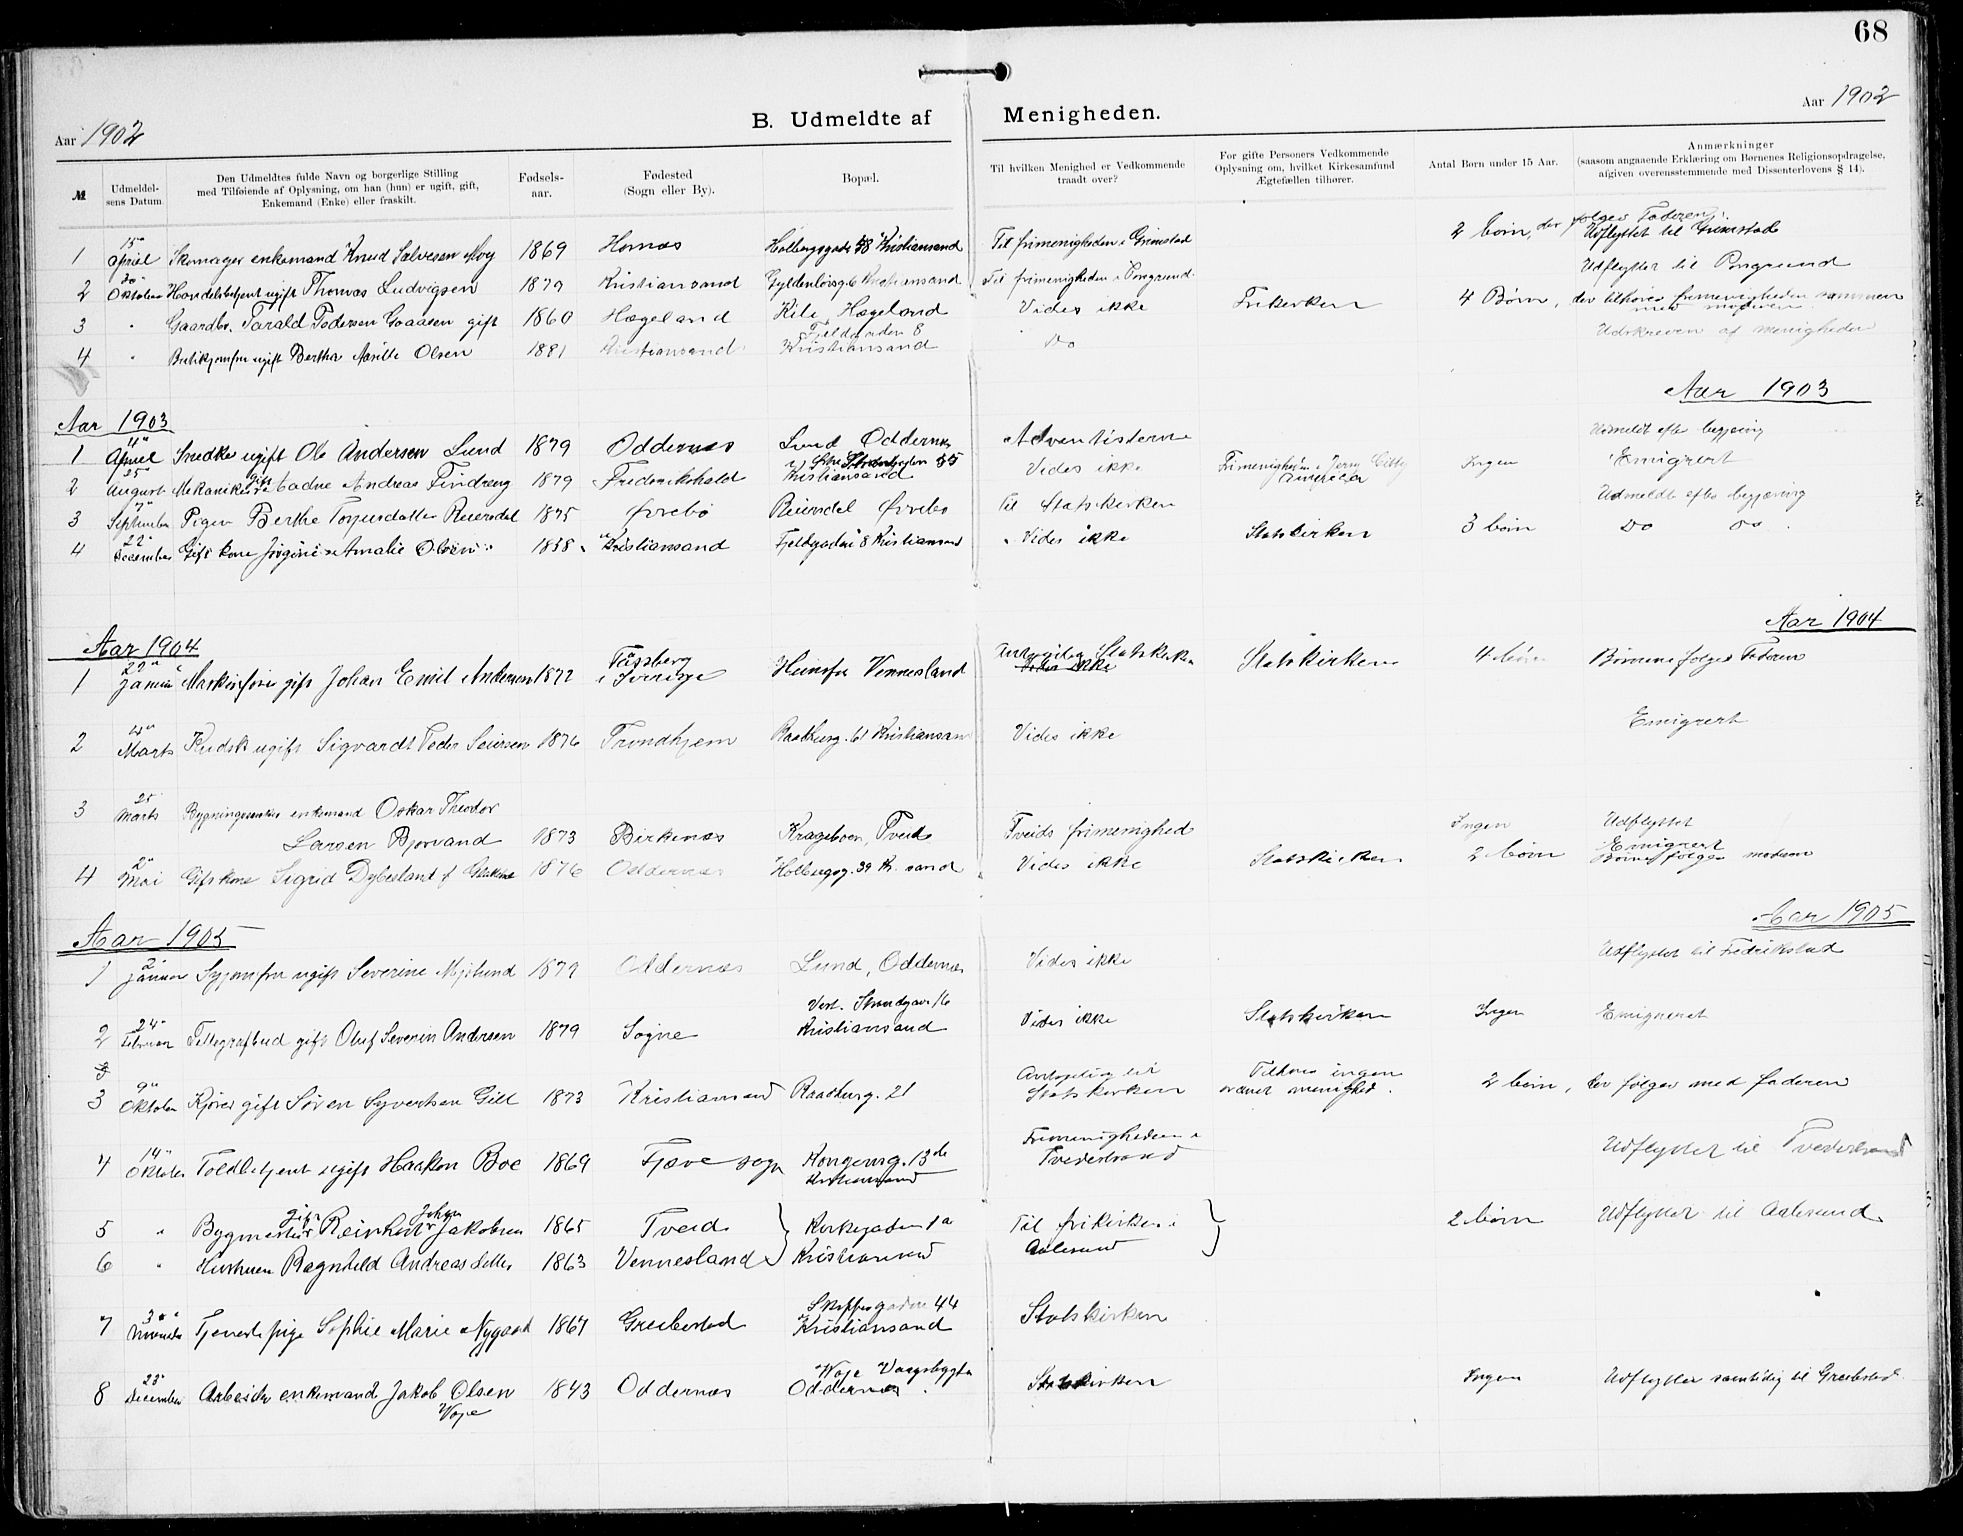 68
Aar 1902
B. Udmeldte af Menigheden.
Aar 1902
№
Udmeldelsens Datum
Den Udmeldtes fulde Navn og borgerlige Stilling med Tilføiende af Oplysning, om han (hun) er ugift, gift, Enkemand (Enke) eller fraskilt.
Fødselsaar.
Fødested (Sogn eller By).
Bopæl.
Til hvilken Menighed er Vedkommende traadt over?
For gifte Personers Vedkommende Oplysning om, hvilket Kirkesamfund Ægtefællen tilhører.
Antal Børn under 15 Aar.
Anmærkninger (saasom angaaende Erklæring om Børnenes Religionsopdragelse, afgiven overensstemmende med Dissenterlovens § 14).
1 15 April Skomager enkemand Knud Salvesen Moy 1869 Hornæs Holbergsgade Kristiansand Til frimenigheden i Grimstad 2 børn, der følger Faderen. Udflyttet til Grimstad
2 30 Oktober Handelsbetjent ugift Thomas Ludvigsen 1879 Kristiansand Gyldenløvsg. 6 Kristiansand Til frimenigheden i Porsgrund Udflyttet til Porsgrund
3 " Gaardbr. Tarald Federsen Gaasen gift 1860 Hægeland Kile, Hægeland Vides ikke Frikirken 4 Børn, der tilhører frimenigheden sammen med moderen
4 " Butikjomfru ugift Bertha Olsen 1881 Kristiansand Fjeldgaden 8 Kristiansand Do Udskreven af menigheden
Aar 1903
Aar 1903
1 4 April Snedker ugift Ole Andersen Lund 1879 Oddernæs Lund Oddernæs Adventisterne Udmeldt efter begjæring
2 25 August Mekaniker gift Andreas Tindreng 1879 Frederikshald Østre Strandgaden 55 Kristiansand Vides ikke Frimenigheden i Jersy Citty Amerika Ingen Emigrert
3 September Pigen Berthe Torjusdatter Reiersdal 1875 Øvrebø Reiersdel Øvrebø Til Statskirken Udmeldt efter begjæring
4 22 December Gift kone Jørgine Amalie Olsen 1858 Kristiansand Fjeldgaden 8 Kristiansand Vides ikke Statskirken 3 børn Do Do
Aar 1904
Aar 1904
1 29 Januar gift Johan Emil Andersen 1872 i Sverige Hunsfos Vennesland Statskirken Statskirken 4 børn Børnene følger Faderen
2 Marts Kudsk ugift Sigvardt Peder Seiersen 1876 Trondhjem Raadhusg. 61 Kristiansand Vides ikke Emigrert
3 25 Marts enkemand Oskar Theodor
Larsen Bjorvand 1873 Birkenæs Krageboen, Tveid Tveids frimenighed Ingen Udflyttet
4 2 Mai Gift kone Sigrid Dybesland 1876 Oddernæs Holbergsg. 39 Kr. sand Vides ikke Statskirken 2 børn Emigrert Børne følger moderen
Aar 1905
Aar 1905
1 Januar Syjomfru ugift Severine Mjølund 1879 Oddernæs Lund, Oddernæs Vides ikke Udflyttet til Fredrikstad
2 24 Februar Tellegrafbud gift Oluf Severin Andersen 1879 Søgne Vest. Strandgade 16 Kristiansand Vides ikke Statskirken Ingen Emigreret
3 9 Oktober Kjører gift Søren Syvertsen Gill 1873 Kristiansand Raadhusg. 21 Antagelig til Statskirken Tilhører ingen ordnet menighed. 2 børn, der følger med faderen
4 14 Oktober Toldbetjent ugift Haakon Boe 1869 Fjære sogn Kongensg. 13 Kristiansand Frimenigheden i Tvedestrand Udflyttet til Tvedestrand
5 " Bygmester gift Reinhert Johan Jakobsen 1865 Tveid Kirkegaden 1a Til frikirken i 2 børn Udflyttet til Aalesund
6 " Hustruen Ragnhild Andreasdatter 1863 Vennesland Kristiansand Aalesund
7 30 November Tjenestepige Sophie Marie Nygaard 1867 Greibestad Skippergaden 44 Kristiansand Statskirken
8 23 December Arbeider enkemand Jakob Olsen Woje 1843 Oddernæs Woje Vaagsbygden Oddernæs Statskirken Ingen Udflytter samtidig til Greibestad